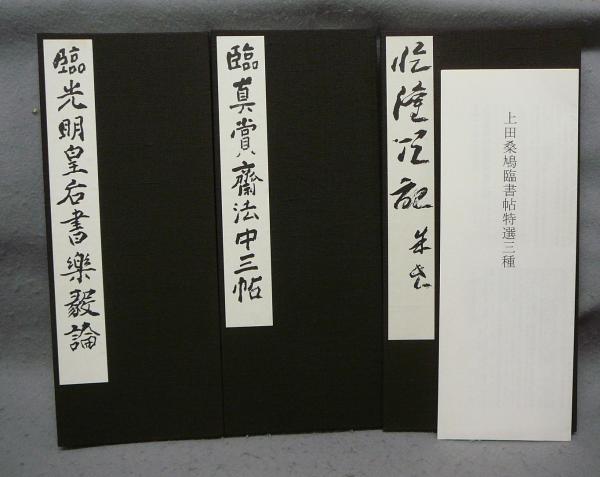 上田桑鳩臨書帖特選三種
臨真賞齋法中三帖
臨光明皇后書樂毅論